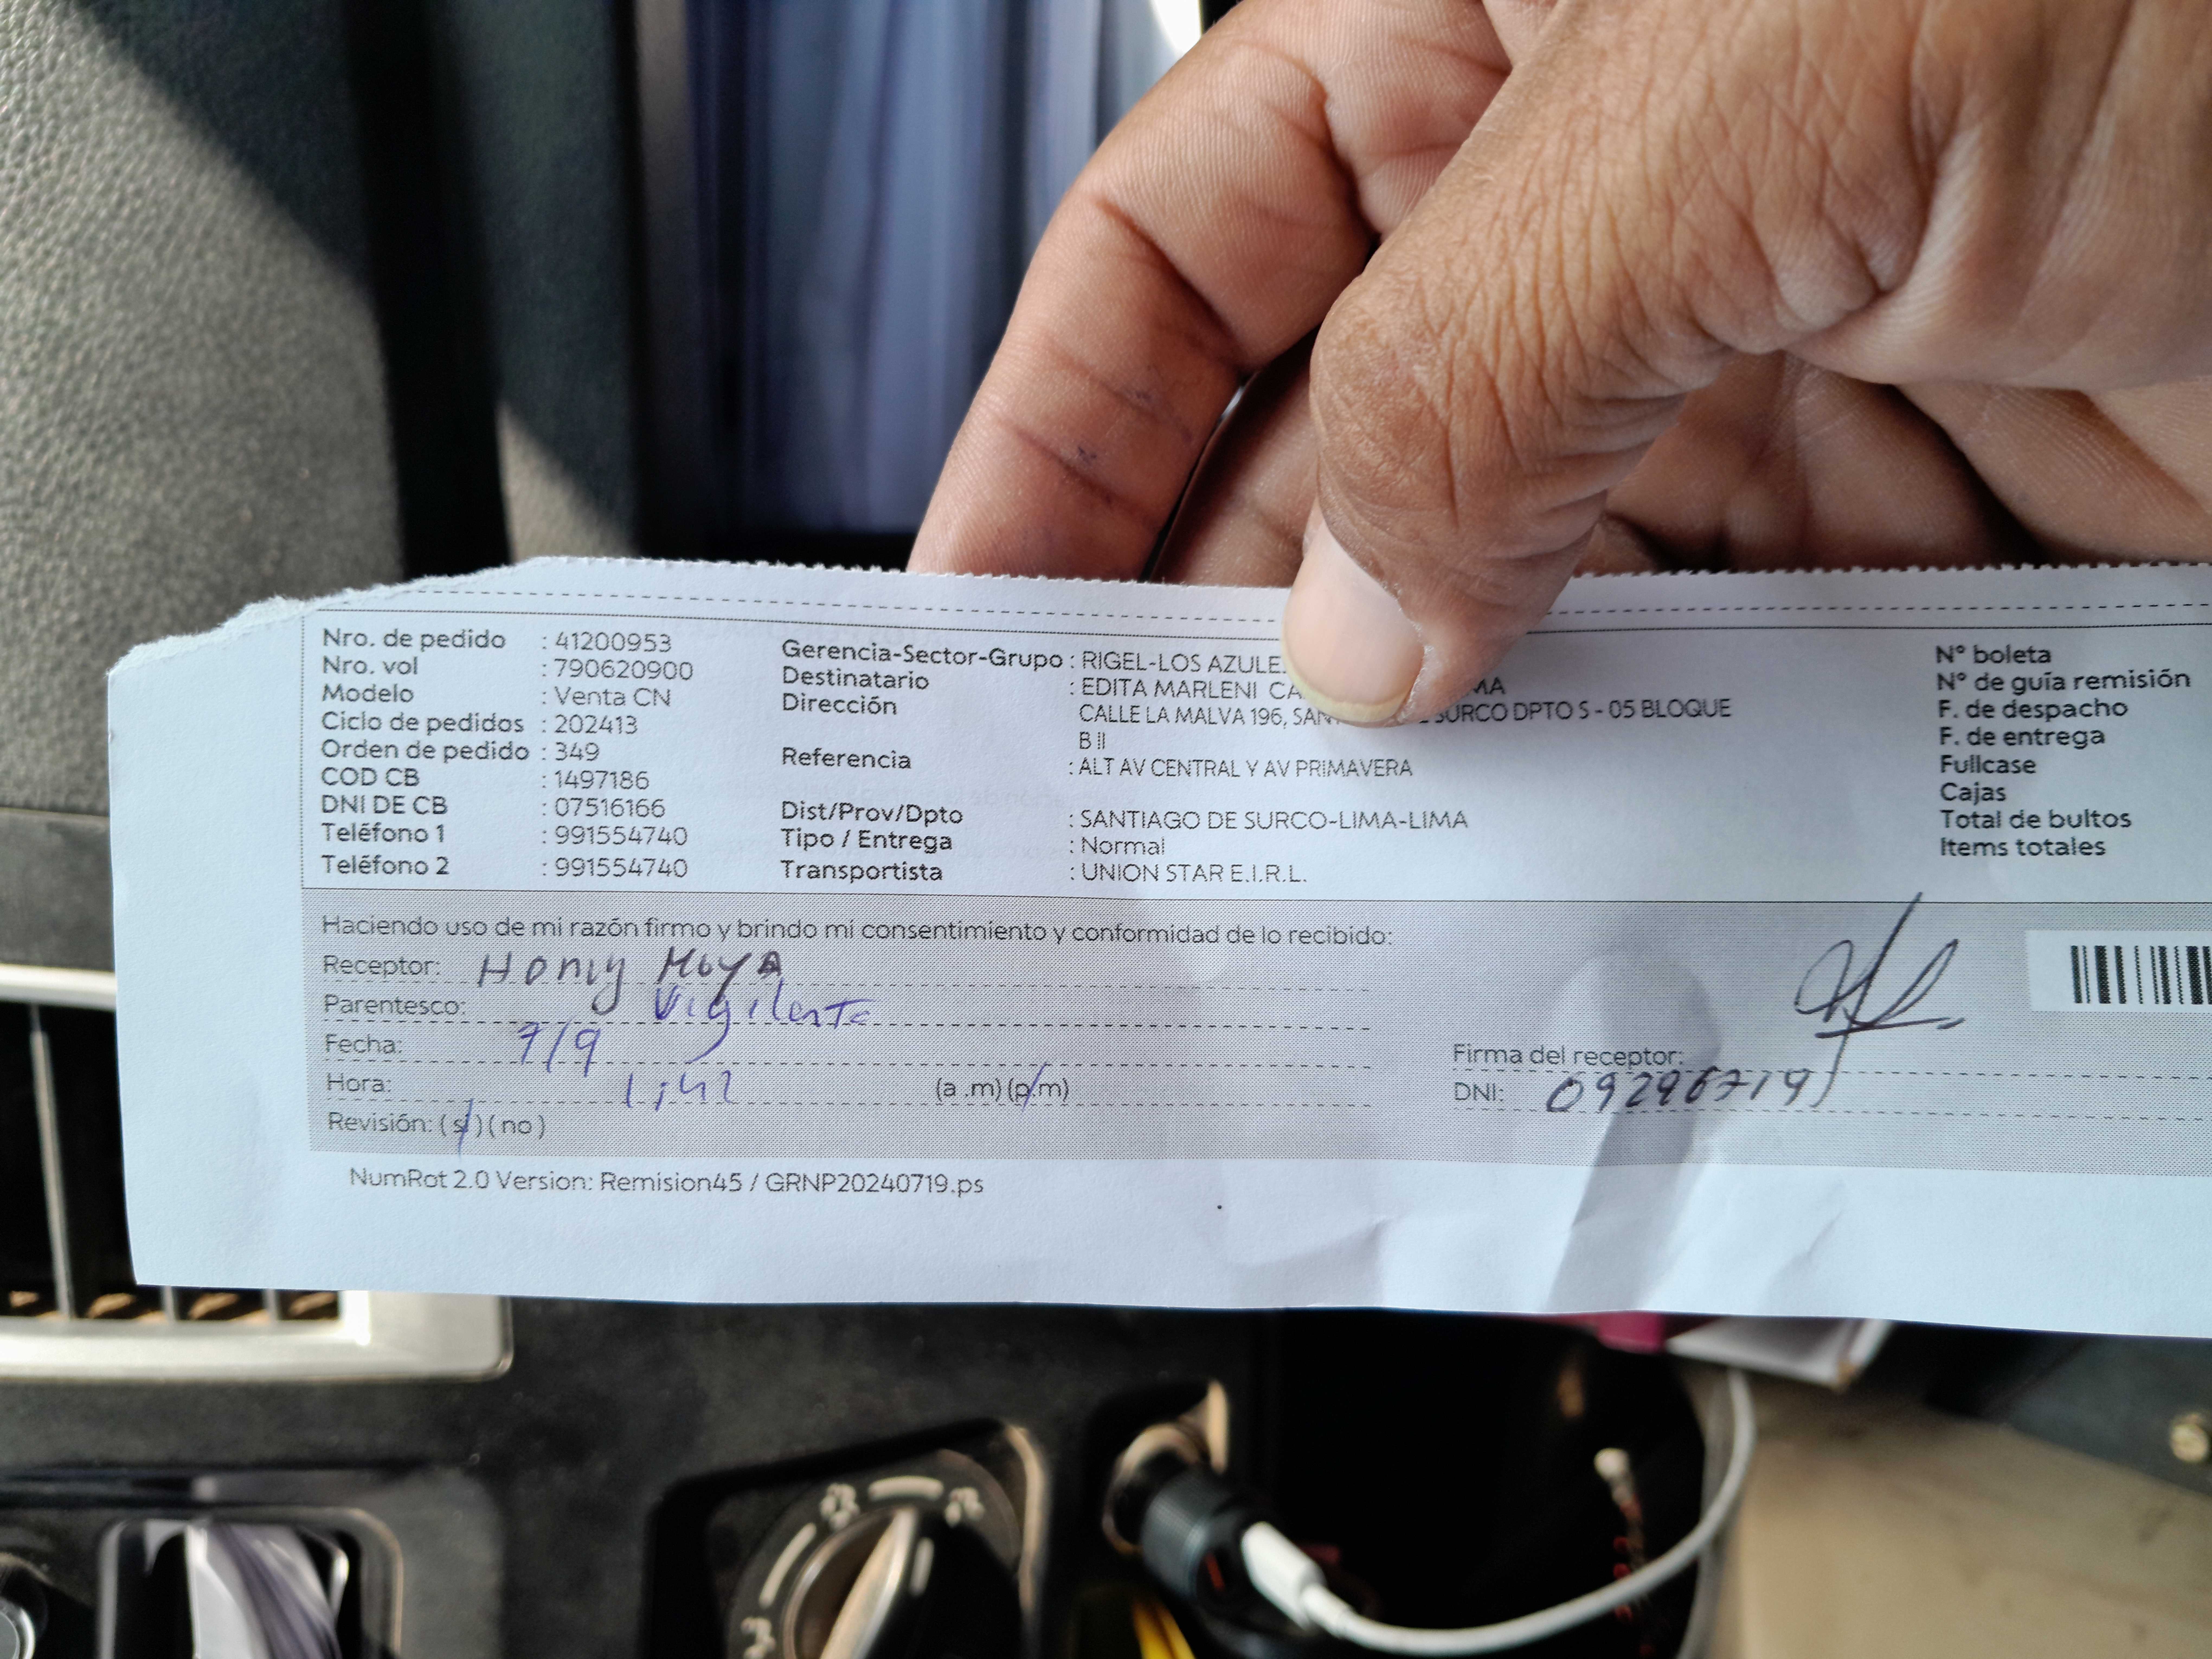 Nro. de pedido : 41200953
Nro. vol : 790620900
Modelo : Venta CN
Ciclo de pedidos : 202413
Orden de pedido : 349
COD CB : 1497186
DNI DE CB : 07516166
Teléfono 1 : 991554740
Teléfono 2 : 991554740
Gerencia-Sector-Grupo : RIGEL-LOS
Destinatario : EDITA MARLENI
Dirección CALLE LA MALVA 196, SURCO DPTO S - 05 BLOQUE
B II
Referencia : ALT AV CENTRAL Y AV PRIMAVERA
Dist/Prov/Dpto : SANTIAGO DE SURCO-LIMA-LIMA
Tipo / Entrega : Normal
Transportista : UNION STAR E.I.R.L.
N° boleta
N° de guía remisión
F. de despacho
F. de entrega
Fullcase
Cajas
Total de bultos
Items totales
Haciendo uso de mi razón firmo y brindo mi consentimiento y conformidad de lo recibido:
Receptor: Moya
Parentesco: Vigilante
Fecha: 7/9
Hora: 1:42 (a .m) (p.m)
Revisión: ( si ) ( no )
Firma del receptor:
DNI: 09296719
NumRot 2.0 Version: Remision45 / GRNP20240719.ps